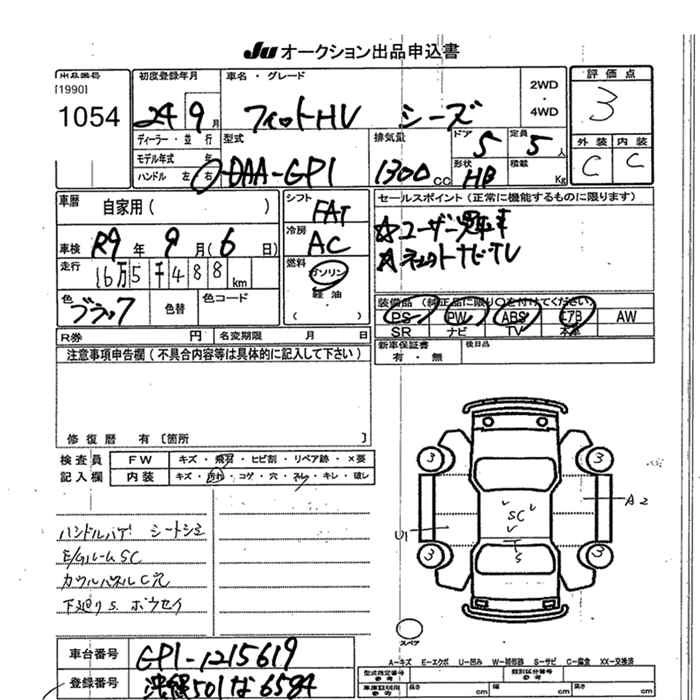 Ju オークション出品申込書
出品番号 初度登録年月 車名・グレード 2WD・4WD 評価点
[1990]
1054 24年9月 フィットHV シーズ 3
ディーラー・並行 型式 排気量 ドア 定員 外装 内装
モデル年式 年 DAA-GP1 1300cc 5 5人 C C
ハンドル 左・右 形状 HB 積載 Kg
車歴 自家用( ) シフト FAT セールスポイント(正常に機能するものに限ります)
車検 R9年9月(6日) 冷房 AC ☆ユーザー買取車
走行 16万5千488km 燃料 ガソリン・軽油・( ) ☆ネットナビTV
色 ブラック 色替 色コード 装備品(純正品に限り○を付けてください)
PS PW ABS エアB AW
R券 円 名変期限 月 日 SR ナビ TV 本革
注意事項申告欄(不具合内容等は具体的に記入して下さい) 新車保証書 有・無 後日品
修復歴 有〔箇所 〕
検査員 FW キズ・飛石・ヒビ割・リペア跡・×要
記入欄 内装 キズ・汚れ・コゲ・穴・スレ・キレ・破し
3 3
A2
SC
U1
S
3 3
スペア
ハンドルハゲ シートシミ
E/GルームSC
カウルパネルC穴
下廻りS.ボウセイ
車台番号 GP1-1215619
A-キズ E-エクボ U-凹み W-補修跡 S-サビ C-腐食 XX-交換済
登録番号 沖縄501な6584
型式指定番号 類別区分番号
長さ cm 幅 cm 高さ cm